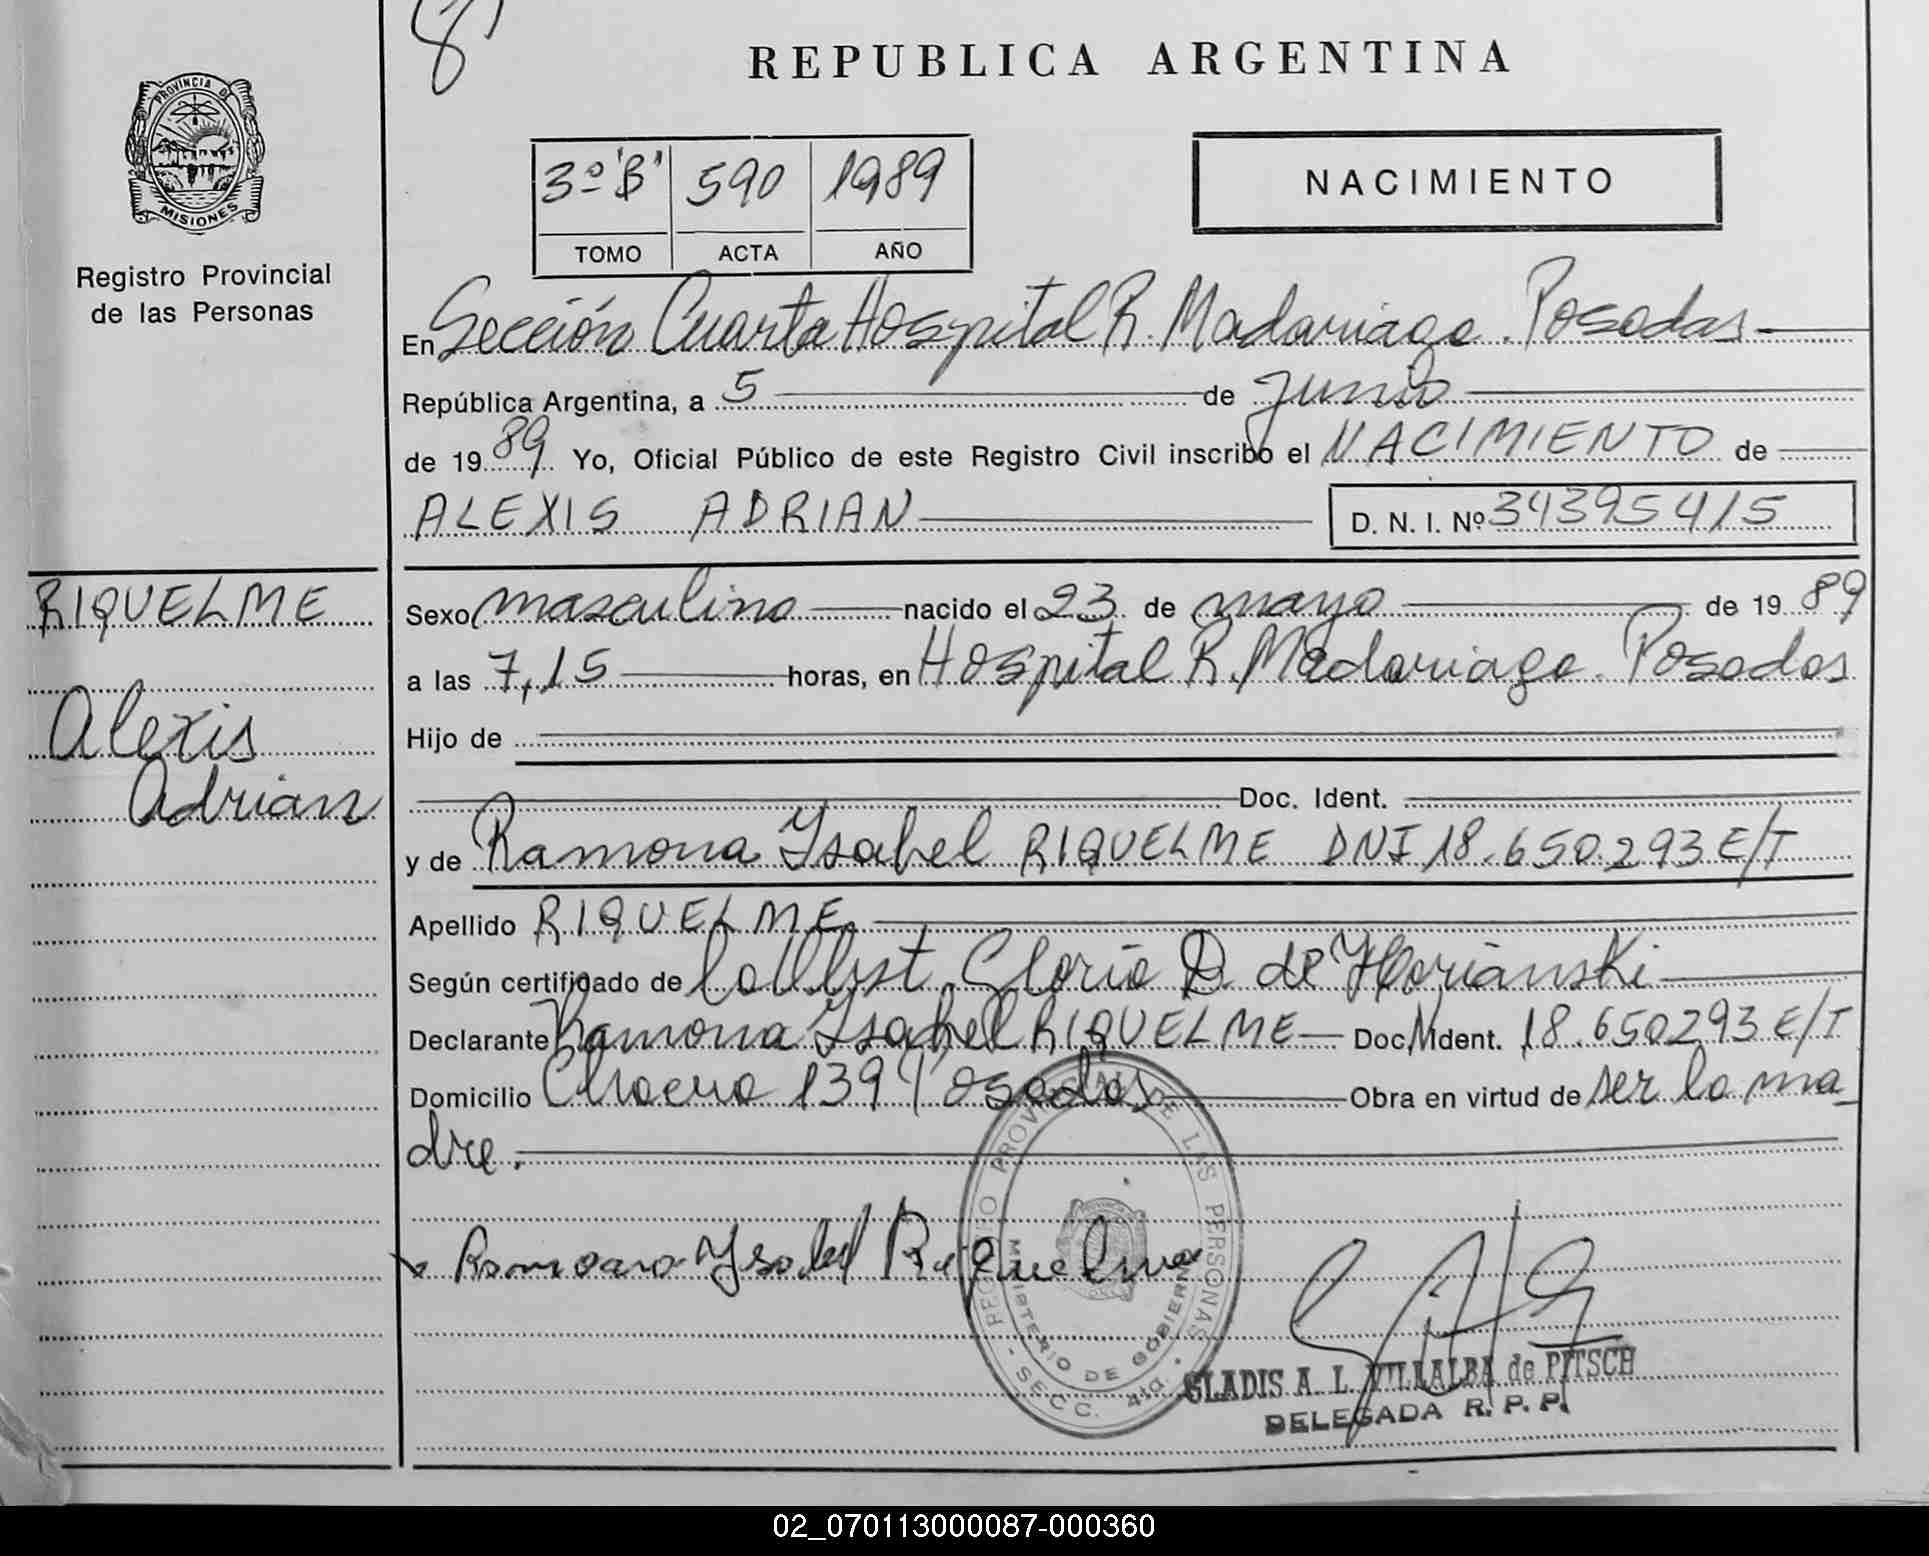 8
REPUBLICA ARGENTINA
PROVINCIA DE
MISIONES
Registro Provincial
de las Personas
3º "B" 590 1989
TOMO ACTA AÑO
NACIMIENTO
En Sección Cuarta Hospital R. Madariaga. Posadas
República Argentina, a 5 de junio
de 1989 Yo, Oficial Público de este Registro Civil inscribo el NACIMIENTO de
ALEXIS ADRIAN D. N. I. Nº 34395415
RIQUELME
Alexis
Adrian
Sexo masculino nacido el 23 de mayo de 1989
a las 7,15 horas, en Hospital R. Madariaga. Posadas
Hijo de
Doc. Ident.
y de Ramona Ysabel RIQUELME DNI 18.650.293 E/T
Apellido RIQUELME
Según certificado de Gloria D. de
Declarante Ramona Ysabel RIQUELME Doc. Ident. 18.650293 E/T
Domicilio 139 Posadas Obra en virtud de ser la ma
dre.
Ramona Ysabel Riquelme
REGISTRO PROVINCIAL DE LAS PERSONAS
MINISTERIO DE GOBIERNO
- SECC. 4ta. -
GLADIS A. L. VILLALBA de PITSCH
DELEGADA R. P. P.
02_070113000087-000360